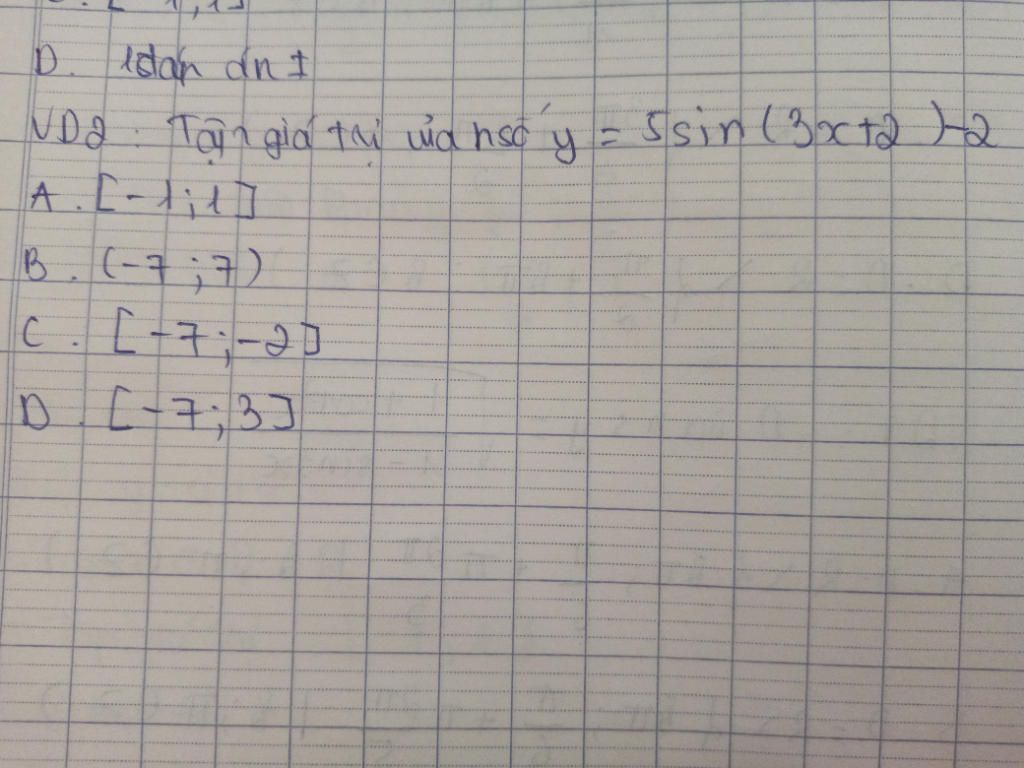 D.
VD2: Tập giá trị của hsố y = 5sin(3x+2)-2
A. [-1;1]
B. (-7;7)
C. [-7;-2]
D. [-7;3]